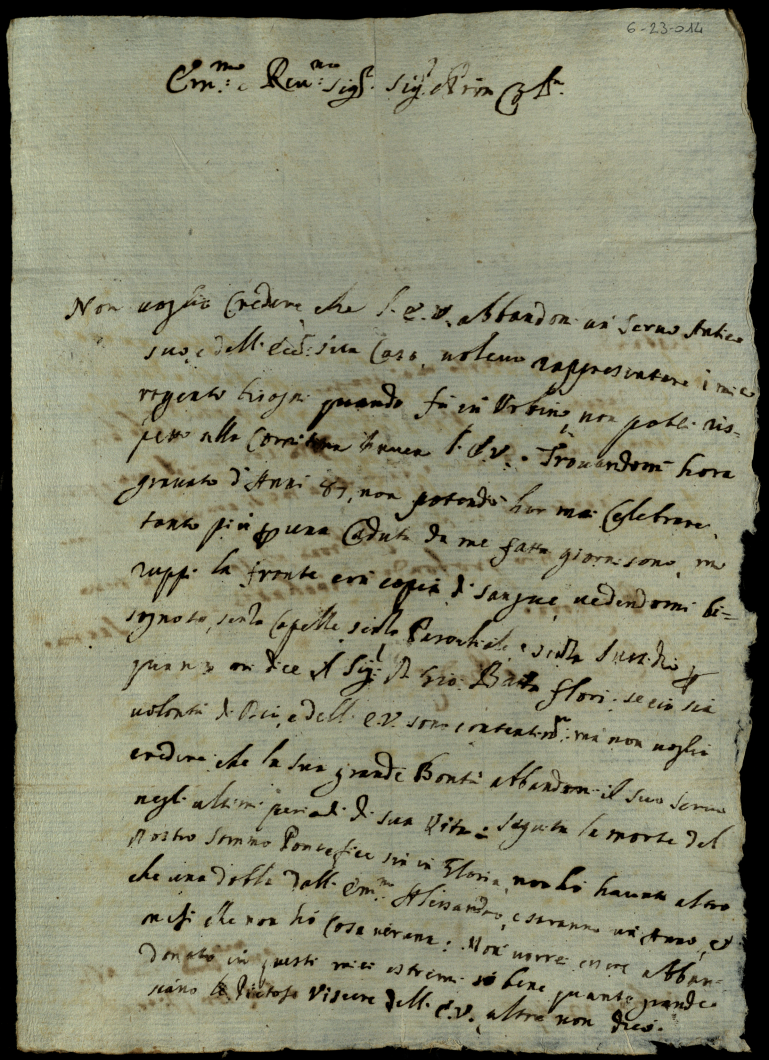 6-23-014
Em.mo e Reu.mo Sig.r Sig.r Pron Col.mo
Non uoglio Credere che l'E.V. abbandoni un Seruo Antico
suo, e dell'Ecc.ssima Casa, uoleuo rappresentare i miei
urgenti bisogni quando fù in Urbino, non potei ris-
petto alla l'E.V. Trouandomi hora
grauato d'Anni 87, non potendo hor mai Celebrare,
tanto più p una Caduta da me fatta giorni sono, mi
ruppi la fronte con copia di sangue, uedendomi bi-
sognoso, senza Capelle senza Parochiale, e senza sussidio p
quanto mi dice il Sig.r D. Gio: Batta Flori: se ciò sia
uolontà di Dio, e dell'E.V. sono contentis.mo: ma non uoglio
credere, che la sua grande Bontà abbandoni il suo Seruo
negli ultimi periodi di sua Vita: seguita la morte del
Nostro Sommo Pontefice sia in Gloria, non hò hauuto altro
che una dobla dall'Em.mo Alessandro, e saranno un Anno, e
mesi che non hò Cosa ueruna: Non uorrei essere abban-
donato in questi miei estremi sò bene quanto grande
siano le Pietose Viscere dell'E.V., altro non dico.